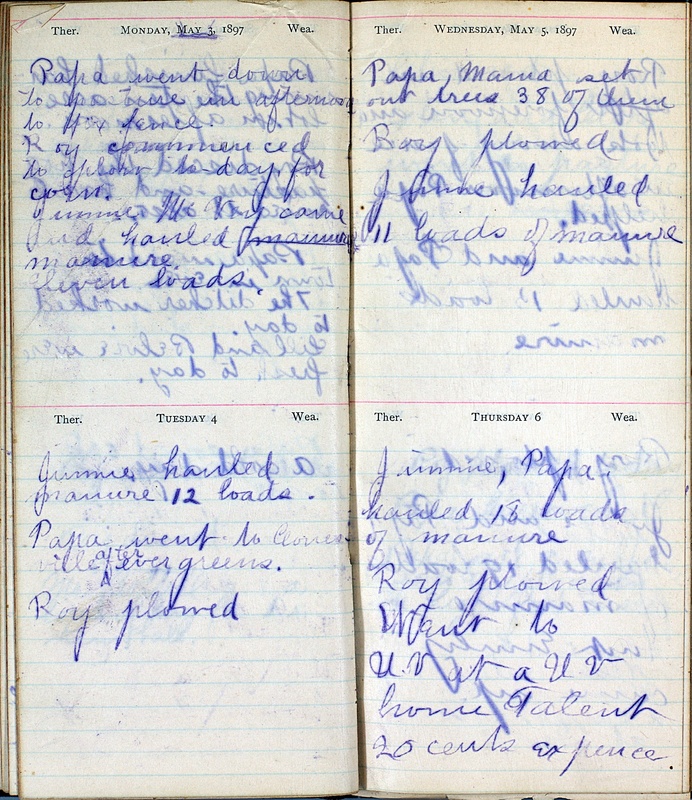 Ther. MONDAY, MAY 3, 1897 Wea.
Papa went down
to pasture in afternoon
to fix fence
Roy commenced
to plow to-day for
corn.
Jimmie Mc came
and hauled manure
manure.
Eleven loads.
Ther. TUESDAY 4 Wea.
Jimmie hauled
manure 12 loads.
Papa went to Clovers
ville after evergreens.
Roy plowed
Ther. WEDNESDAY, MAY 5, 1897 Wea.
Papa, Mama set
out trees 38 of them
Roy plowed
Jimmie hauled
11 loads of manure
Ther. THURSDAY 6 Wea.
Jimmie, Papa,
hauled 13 loads
of manure
Roy plowed
Went to
U.V at a U V
home Talent
20 cents expence